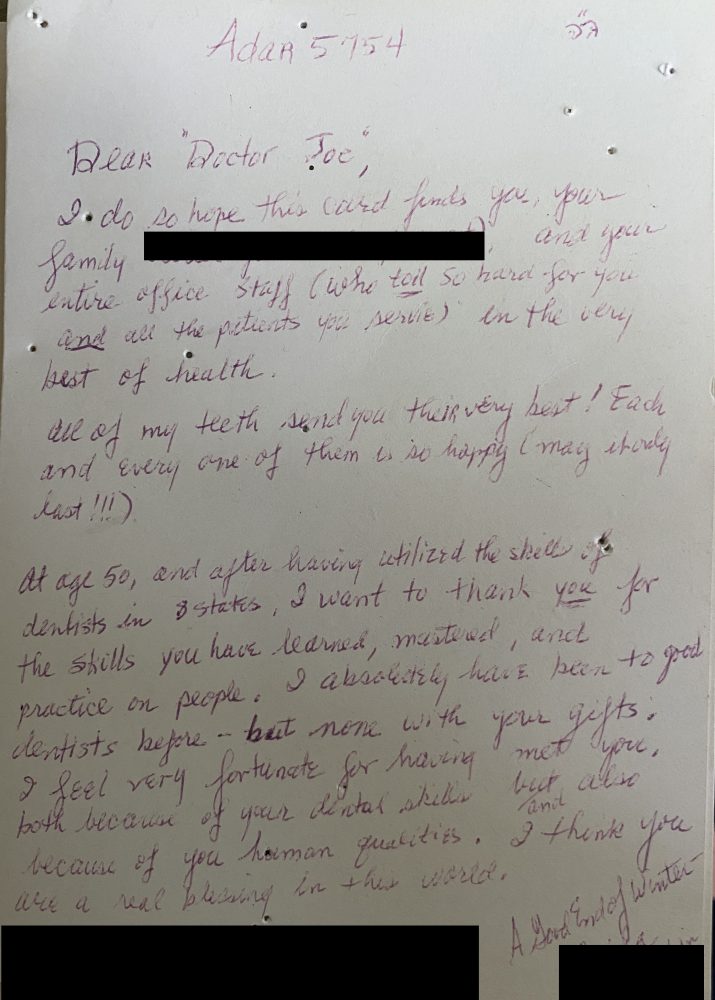 Adar 5754
Dear "Doctor Joe",
I do so hope this card finds you, your
family and your
entire office staff (who toil so hard for you
and all the patients you service) in the very
best of health.
All of my teeth send you their very best! Each
and every one of them is so happy (may it only
last!!!)
At age 50, and after having utilized the skills of
dentists in 8 states, I want to thank you for
the skills you have learned, mastered, and
practice on people. I absolutely have been to good
dentists before - but none with your gifts.
I feel very fortunate for having met you,
both because of your dental skills but also
and
because of you human qualities. I think you
are a real blessing in this world.
A Good End of Winter